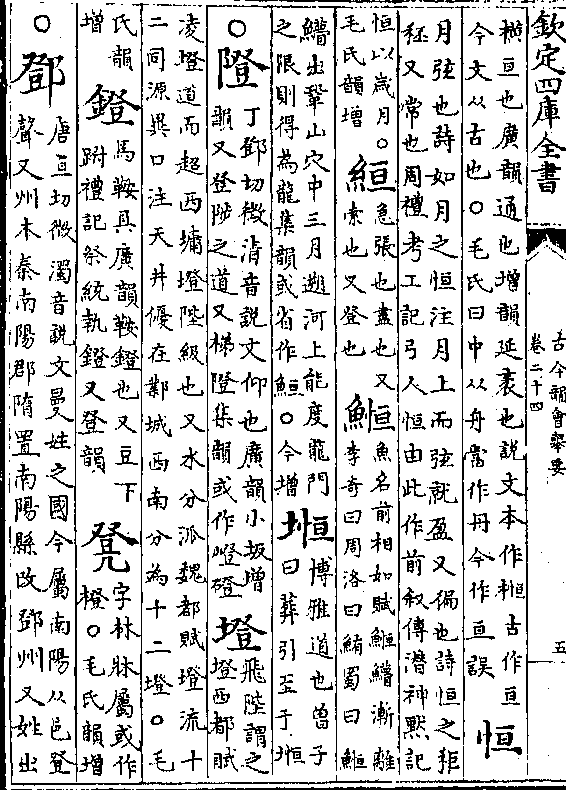 欽定四庫全書
古今韻會舉要
卷二十四
五
亘也廣韻通也增韻延袤也説文本作𣕲古作亘
今文从古也○毛氏曰中从舟當作丹今作亘誤
恒
月弦也詩如月之恒注月上而弦就盈又徧也詩恒之秬
秠又常也周禮考工記弓人恒由此作前叙傳潛神默記
恒以歲月○
毛氏韻增
縆
急張也盡也又
索也又登也
䱭
魚名前相如賦䱭䲛漸離
李奇曰周洛曰鮪蜀曰䱭
䲛出鞏山穴中三月遡河上能度龍門
之限則得為龍集韻或省作䱍○今增
堩
博雅道也曾子
曰葬引至于堩
○隥
丁鄧切徵清音説文仰也廣韻小坂增
韻又登陟之道又梯隥集韻或作嶝磴
墱
飛陛謂之
墱西都賦
凌墱道而超西墉墱陛級也又水分派魏都賦墱流十
二同源異口注天井偃在鄴城西南分為十二墱○毛
氏韻
增
鐙
馬鞍具廣韻鞍鐙也又豆下
跗禮記祭統執鐙又登韻
凳
字林牀屬或作
橙○毛氏韻增
○鄧
唐亘切徵濁音説文曼姓之國今屬南陽从邑登
聲又州本秦南陽郡隋置南陽縣改鄧州又姓出